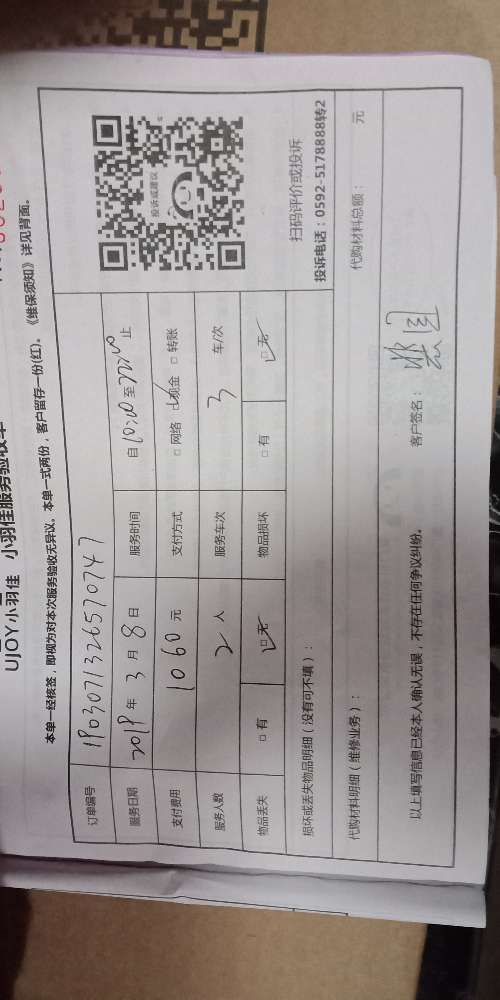 UJOY小羽佳 小羽佳服务验收单
本单一经核签，即视为对本次服务验收无异议。本单一式两份，客户留存一份(红)。《维保须知》详见背面。
订单编号 1903071326570747
服务日期 2019年3月8日 服务时间 自10:00至22:00止
支付费用 1060元 支付方式 □网络 ☑现金 □转账
服务人数 2人 服务车次 3车/次
物品丢失 □有 ☑无 物品损坏 □有 ☑无
投诉或建议
扫码评价或投诉
投诉电话：0592-5178888转2
损坏或丢失物品明细（没有可不填）：
代购材料明细（维修业务）： 代购材料总额： 元
以上填写信息已经本人确认无误，不存在任何争议纠纷。 客户签名：